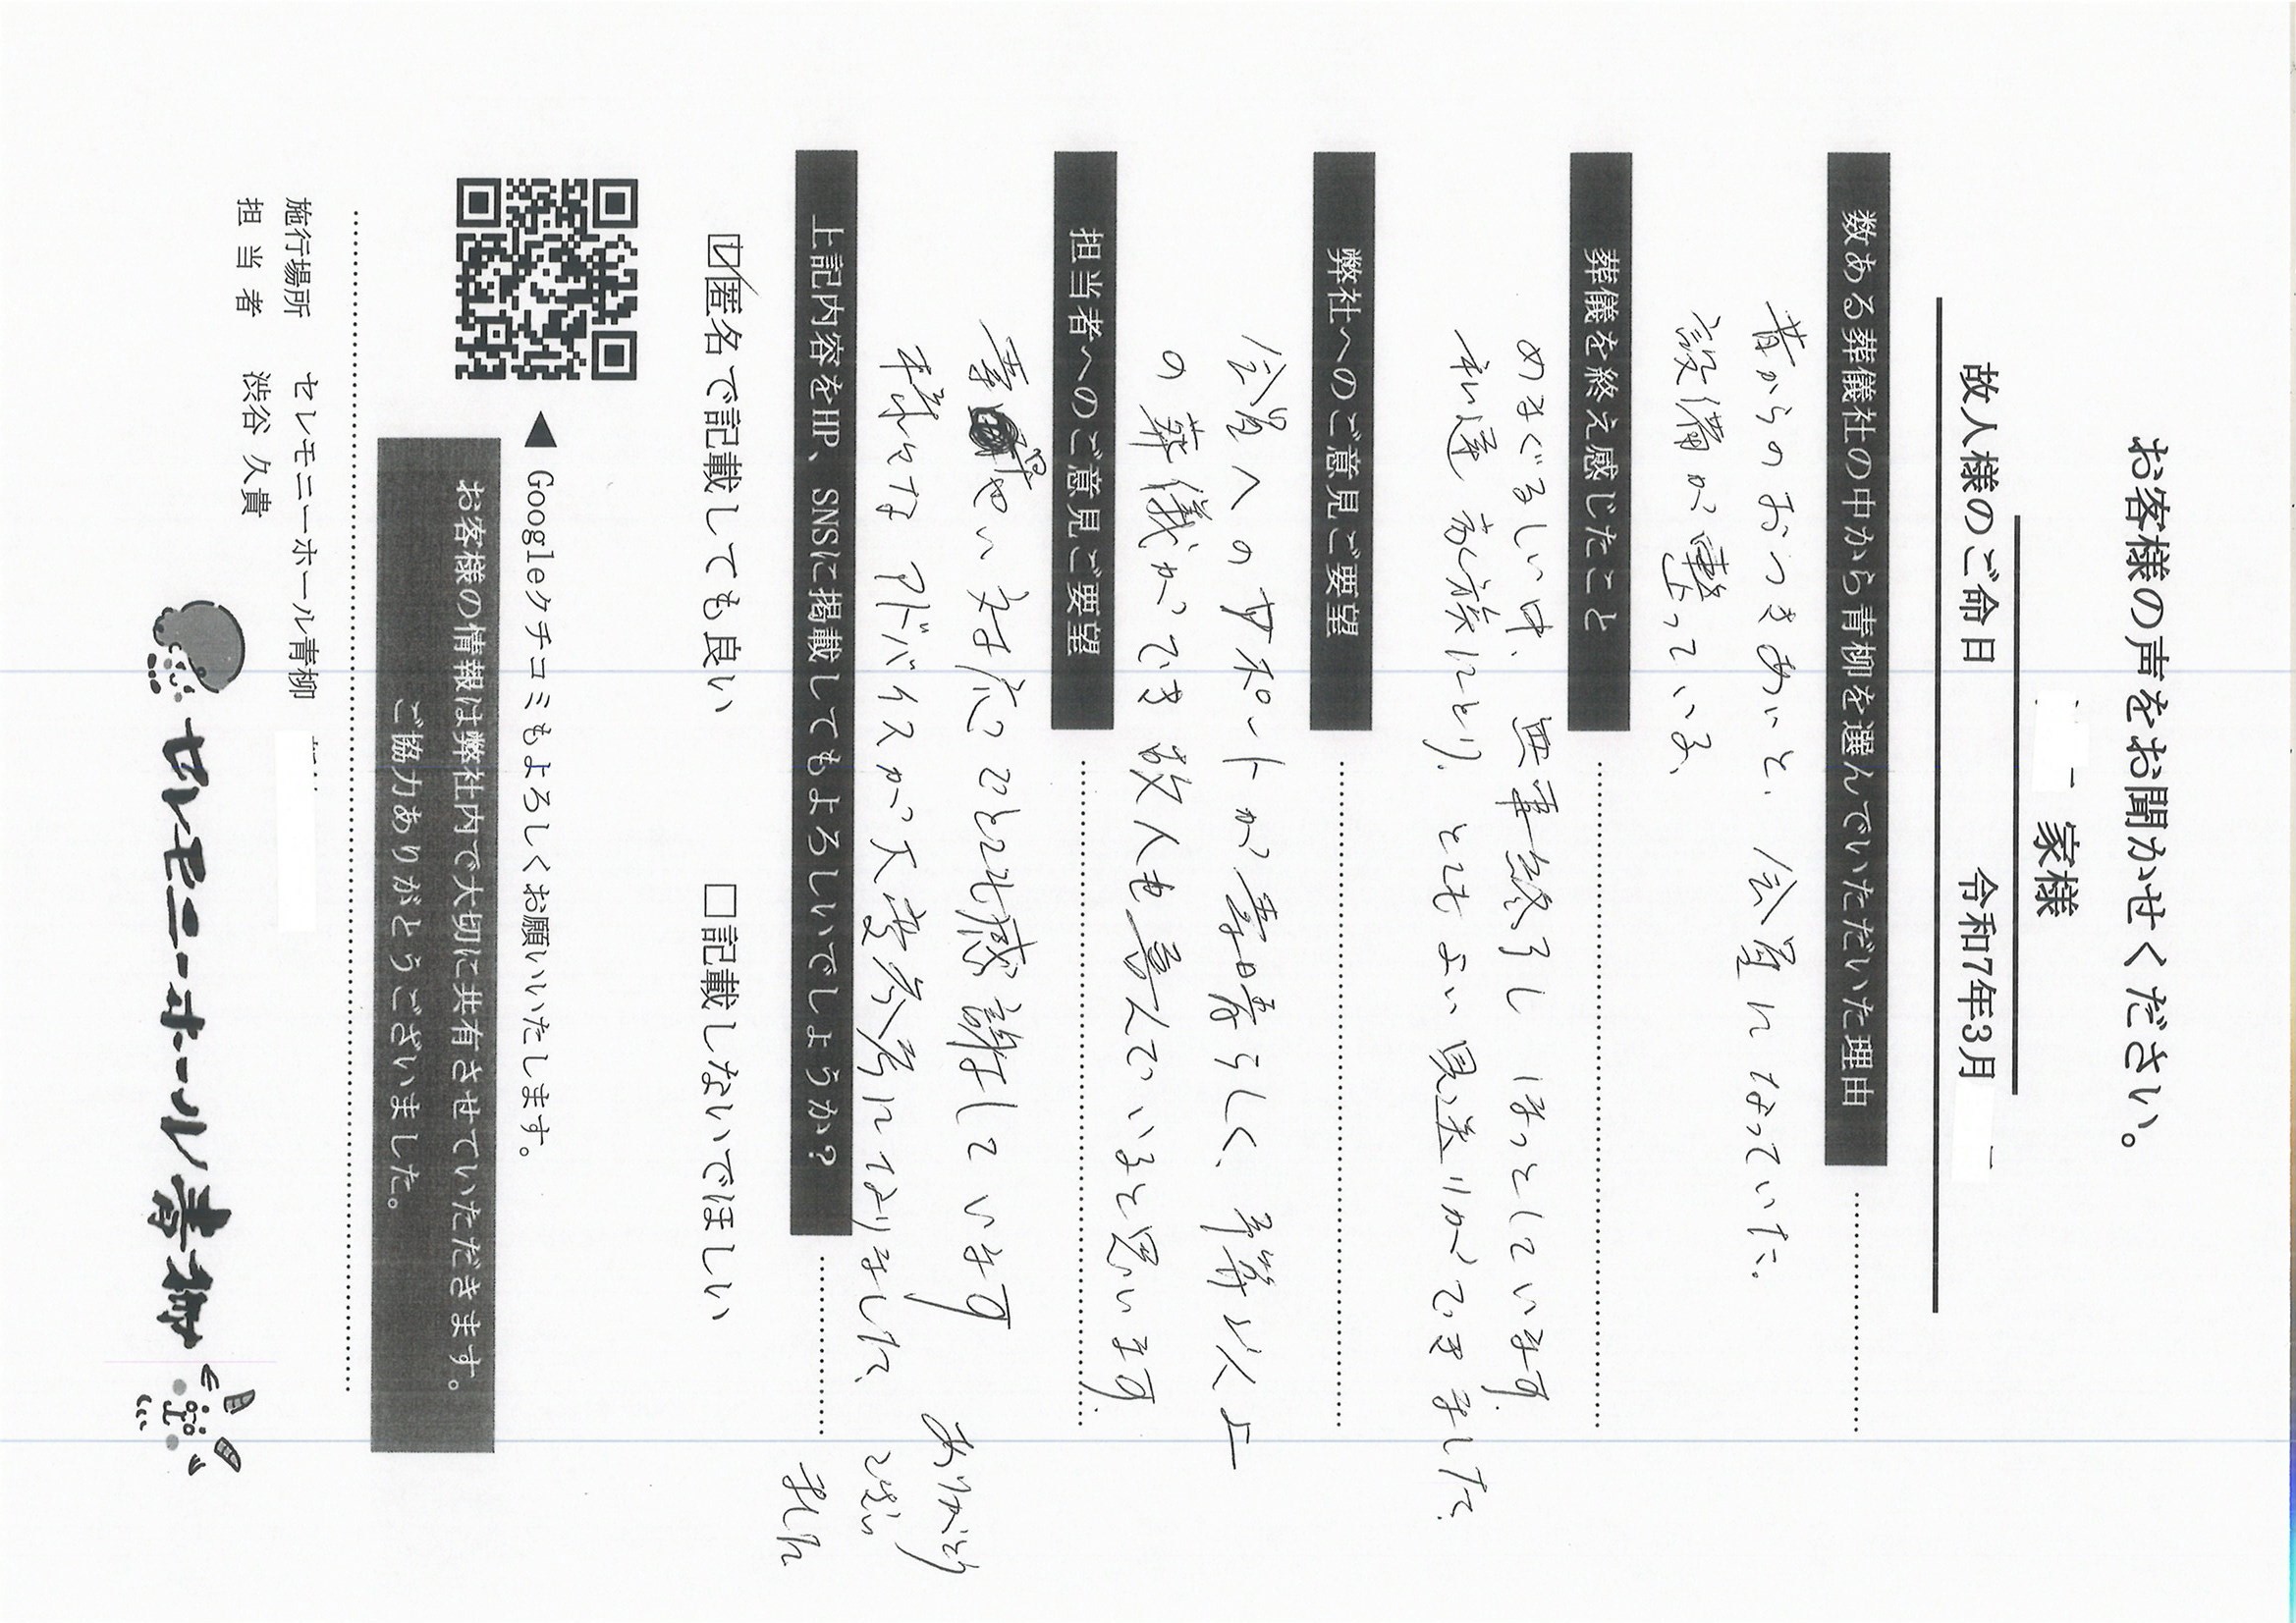 お客様の声をお聞かせください。
家様
故人様のご命日 令和7年3月
数ある葬儀社の中から青柳を選んでいただいた理由
昔からのおつきあいと、会員になっていた。
設備が整っている、
葬儀を終え感じたこと
めまぐるしい中、無事終了し ほっとしています。
私達 家族にとり、とてもよい見送りができました。
弊社へのご意見ご要望
会場へのサポートが素晴らしく、予算以上
の葬儀ができ 故人も喜んでいると思います。
担当者へのご意見ご要望
い対応でとても感謝しています
様々なアドバイスが大変参考になりました、
ありがとう
ござい
ました
上記内容をHP、SNSに掲載してもよろしいでしょうか?
☑匿名で記載しても良い □記載しないでほしい
◀ Googleクチコミもよろしくお願いいたします。
お客様の情報は弊社内で大切に共有させていただきます。
ご協力ありがとうございました。
施行場所 セレモニーホール青柳
担当者 渋谷 久貴
セレモニーホール青柳